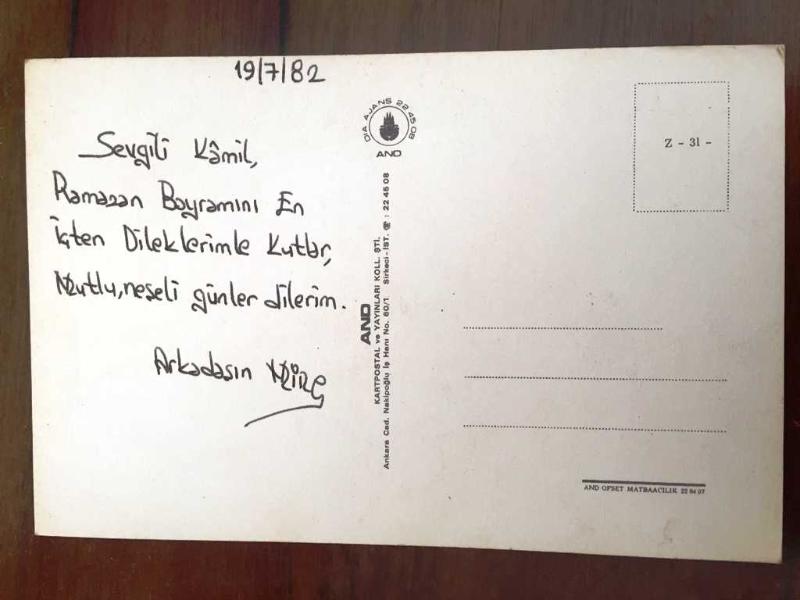 19/7/82
Sevgili Kâmil,
Ramazan Bayramını En
İçten Dileklerimle Kutlar,
Mutlu, neşeli günler dilerim.
Arkadaşın
DİA AJANS 22 45 08
AND
AND
KARTPOSTAL ve YAYINLARI KOLL. ŞTİ.
Ankara Cad. Nakipoğlu İş Hanı No. 60/1 Sirkeci - İST. ☎ : 22 45 08
Z - 31 -
AND OFSET MATBAACILIK 22 84 07